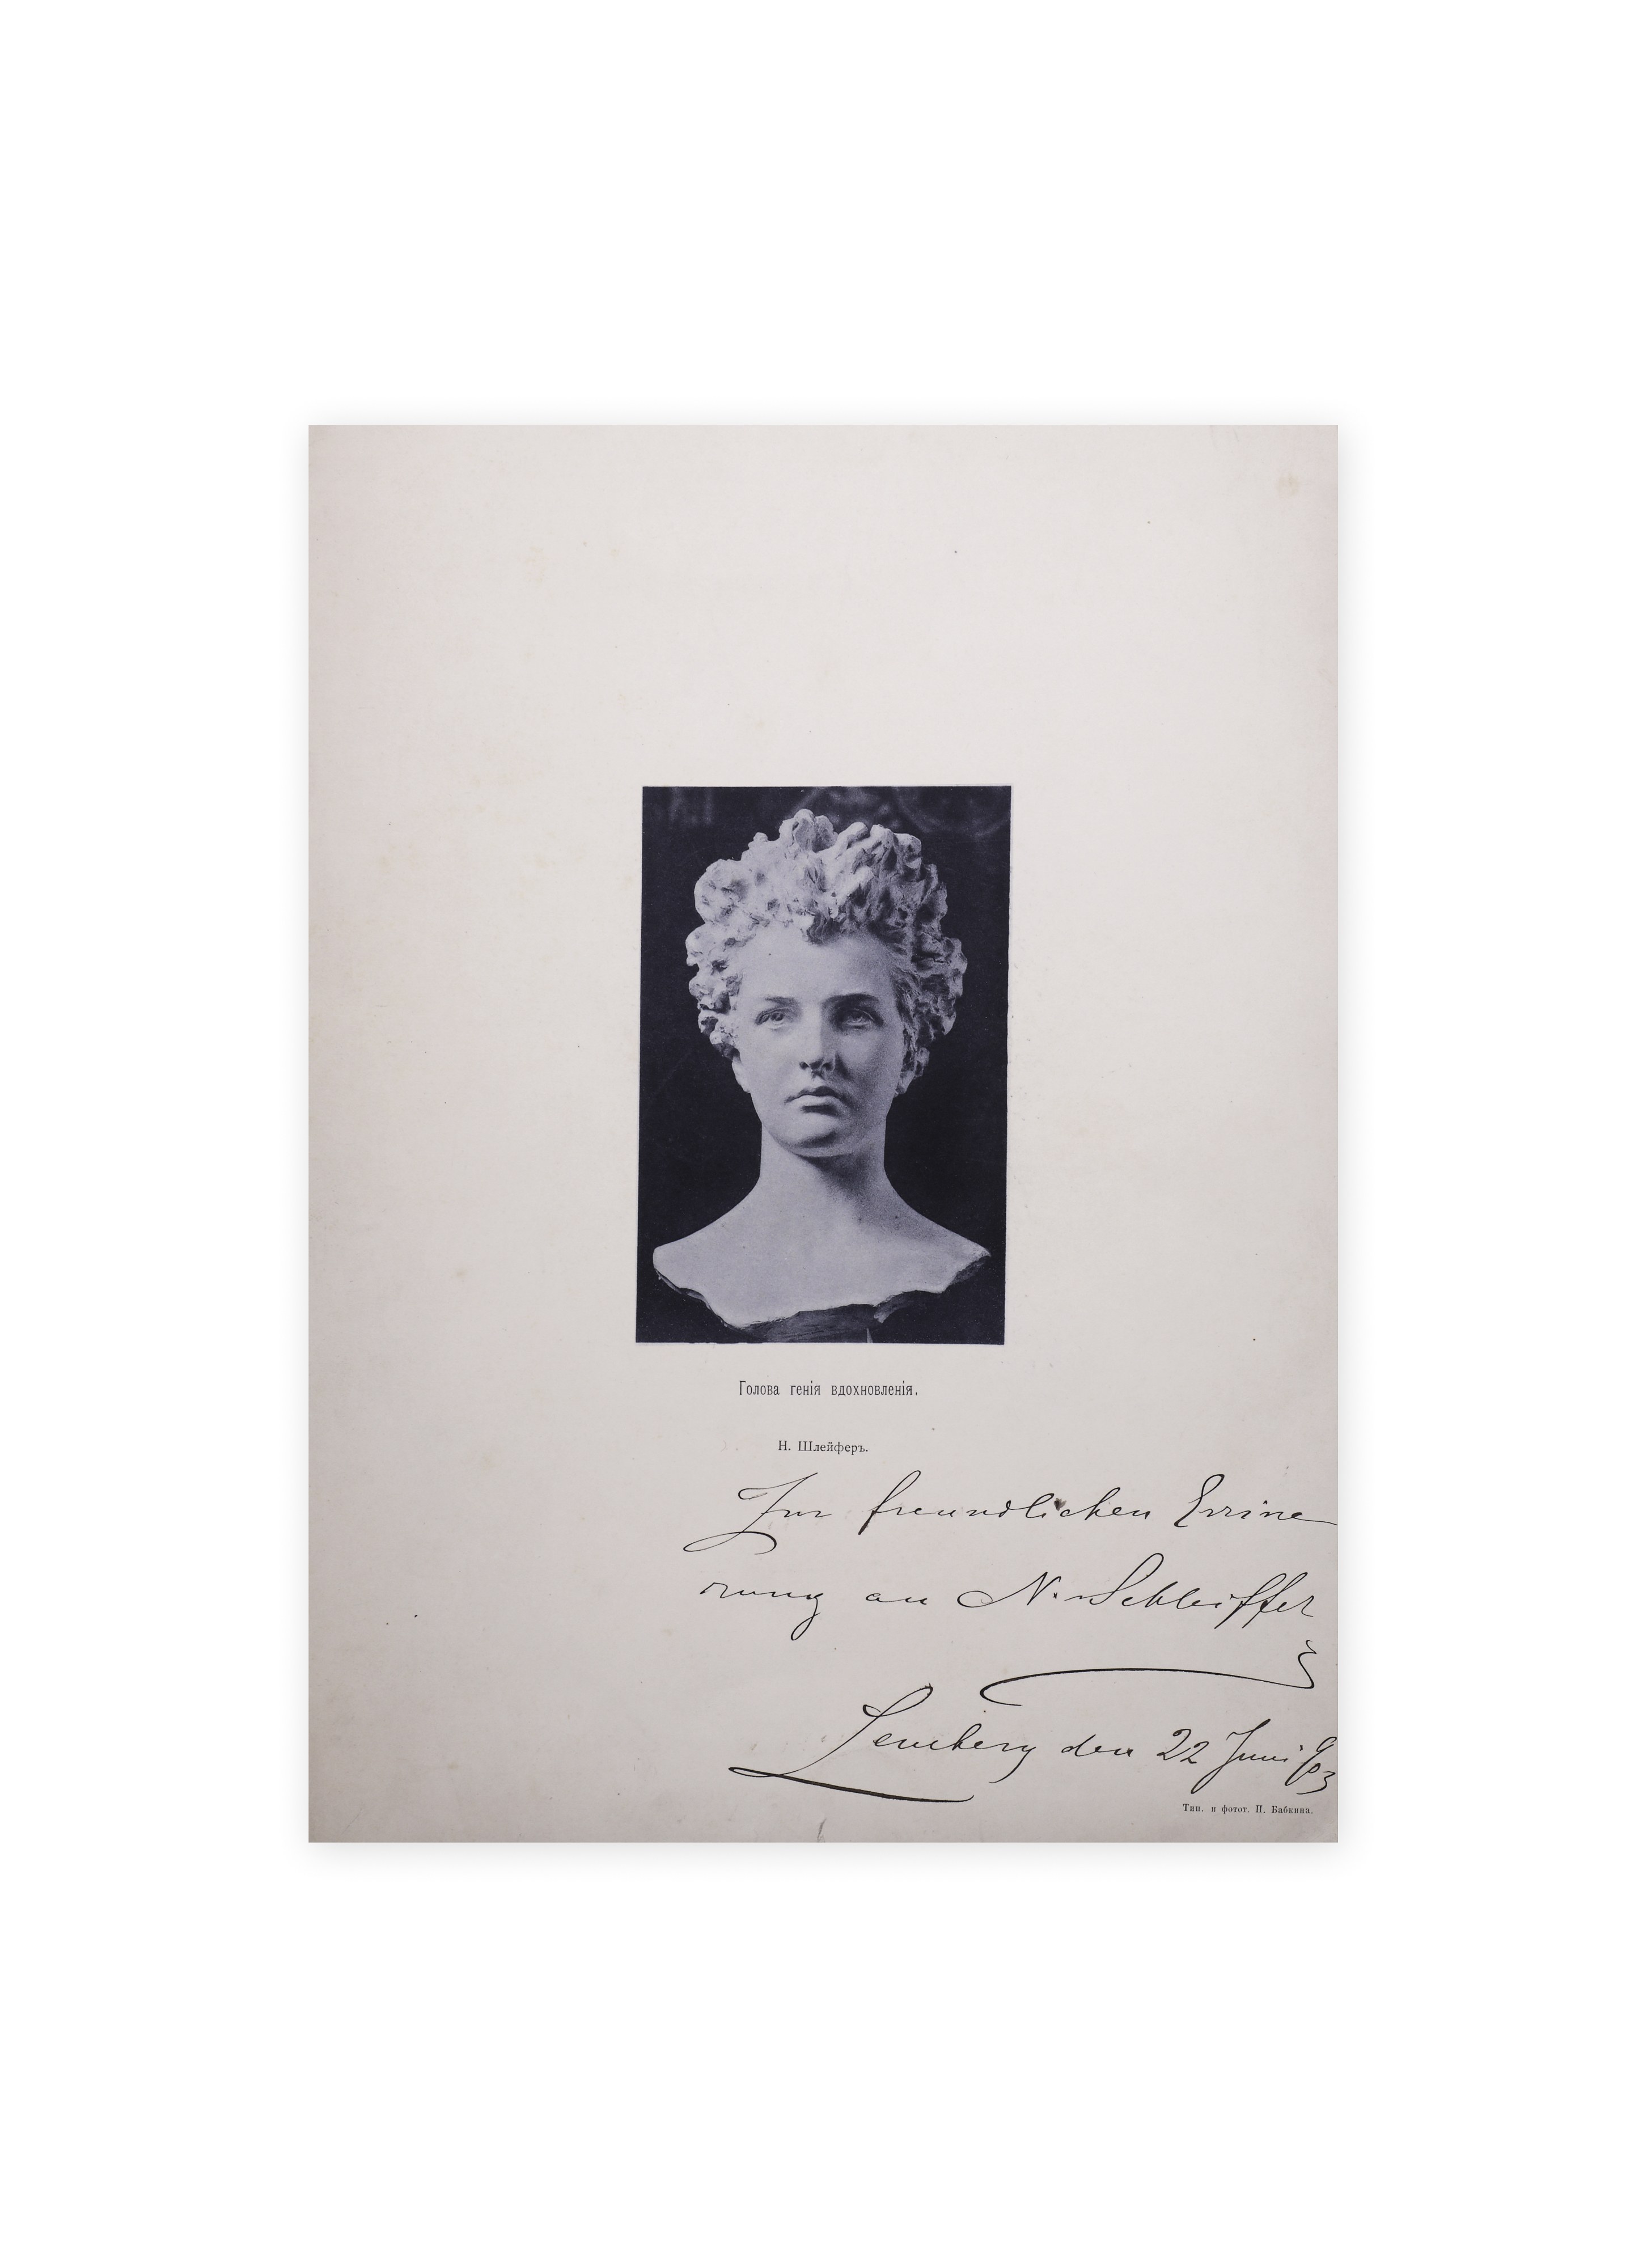 Голова генія вдохновленія.
Н. Шлейферъ.
Zur freundlichen Errine
rung an N. Schleiffer
Lemberg den 22 Juni 903
Тип. и фотот. П. Бабкина.